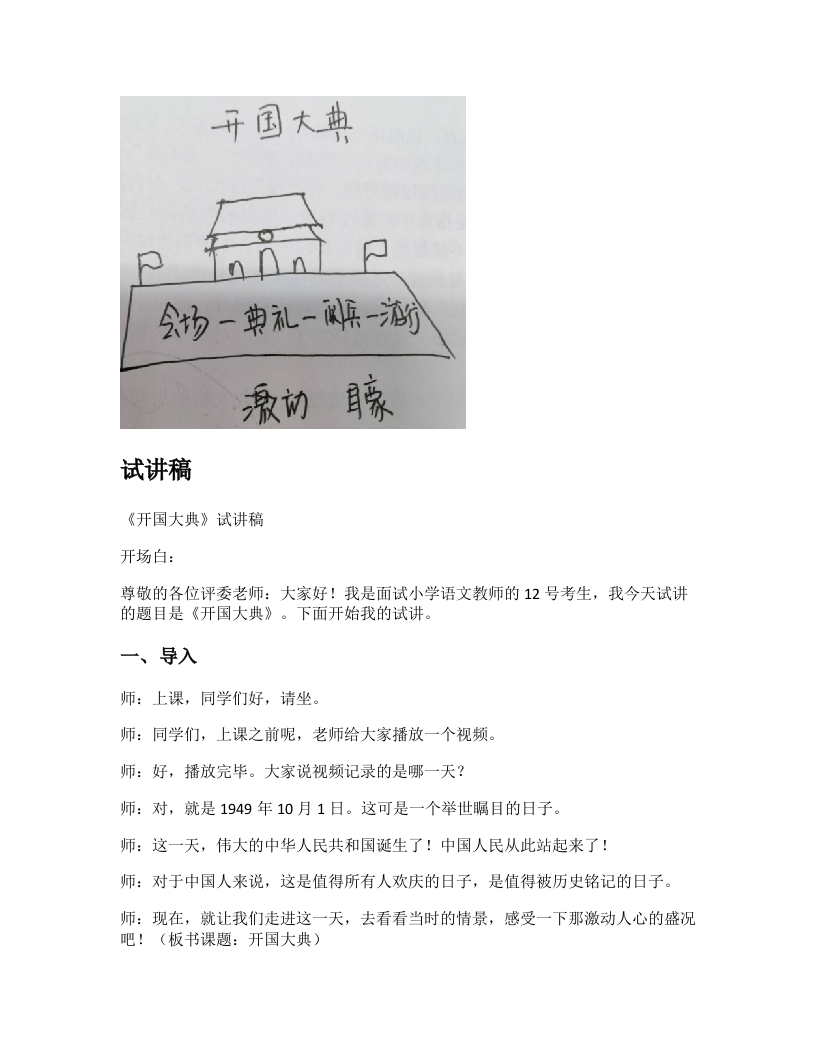 开国大典
会场—典礼—阅兵—游行
激动 自豪
试讲稿
《开国大典》试讲稿
开场白：
尊敬的各位评委老师：大家好！我是面试小学语文教师的 12 号考生，我今天试讲
的题目是《开国大典》。下面开始我的试讲。
一、导入
师：上课，同学们好，请坐。
师：同学们，上课之前呢，老师给大家播放一个视频。
师：好，播放完毕。大家说视频记录的是哪一天？
师：对，就是 1949 年 10 月 1 日。这可是一个举世瞩目的日子。
师：这一天，伟大的中华人民共和国诞生了！中国人民从此站起来了！
师：对于中国人来说，这是值得所有人欢庆的日子，是值得被历史铭记的日子。
师：现在，就让我们走进这一天，去看看当时的情景，感受一下那激动人心的盛况
吧！（板书课题：开国大典）